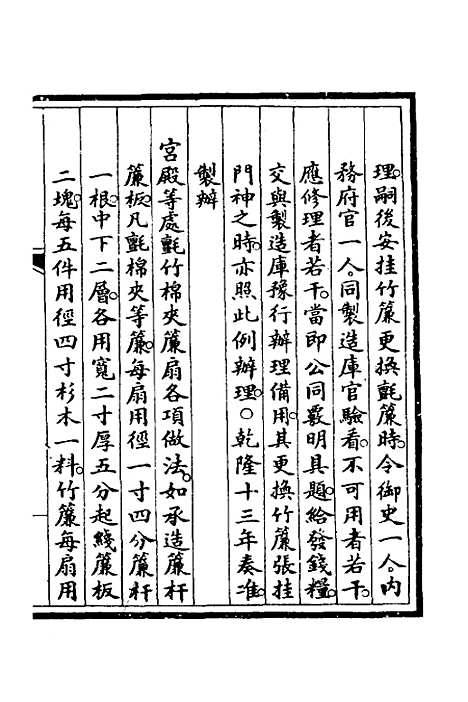 理。嗣後安挂竹簾更換氈簾時。令御史一人。內
務府官一人。同製造庫官驗看。不可用者若干。
應修理者若干。當即公同覈明具題。給發錢糧。
交與製造庫豫行辦理備用。其更換竹簾張挂
門神之時。亦照此例辦理。○乾隆十三年奏准。
製辦
宮殿等處氈竹棉夾簾扇各項做法。如承造簾杆
簾板。凡氈棉夾等簾。每扇用徑一寸四分簾杆
一根。中下二層。各用寬二寸厚五分起綫簾板
二塊。每五件用徑四寸杉木一料。竹簾每扇用